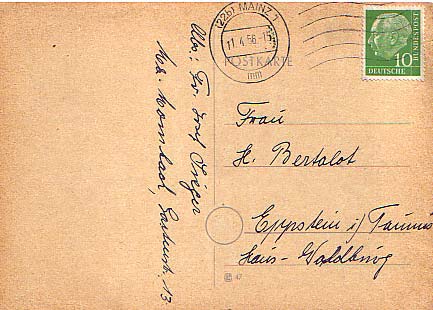 (22b) MAINZ 7
11.4.56-15
mm
POSTKARTE
DEUTSCHE
BUNDESPOST
10
Abs: Fr. Josef
Mz. Mombach, 13
Frau
H. Bertalot
Eppstein i/Taunus
Haus-Waldburg
47